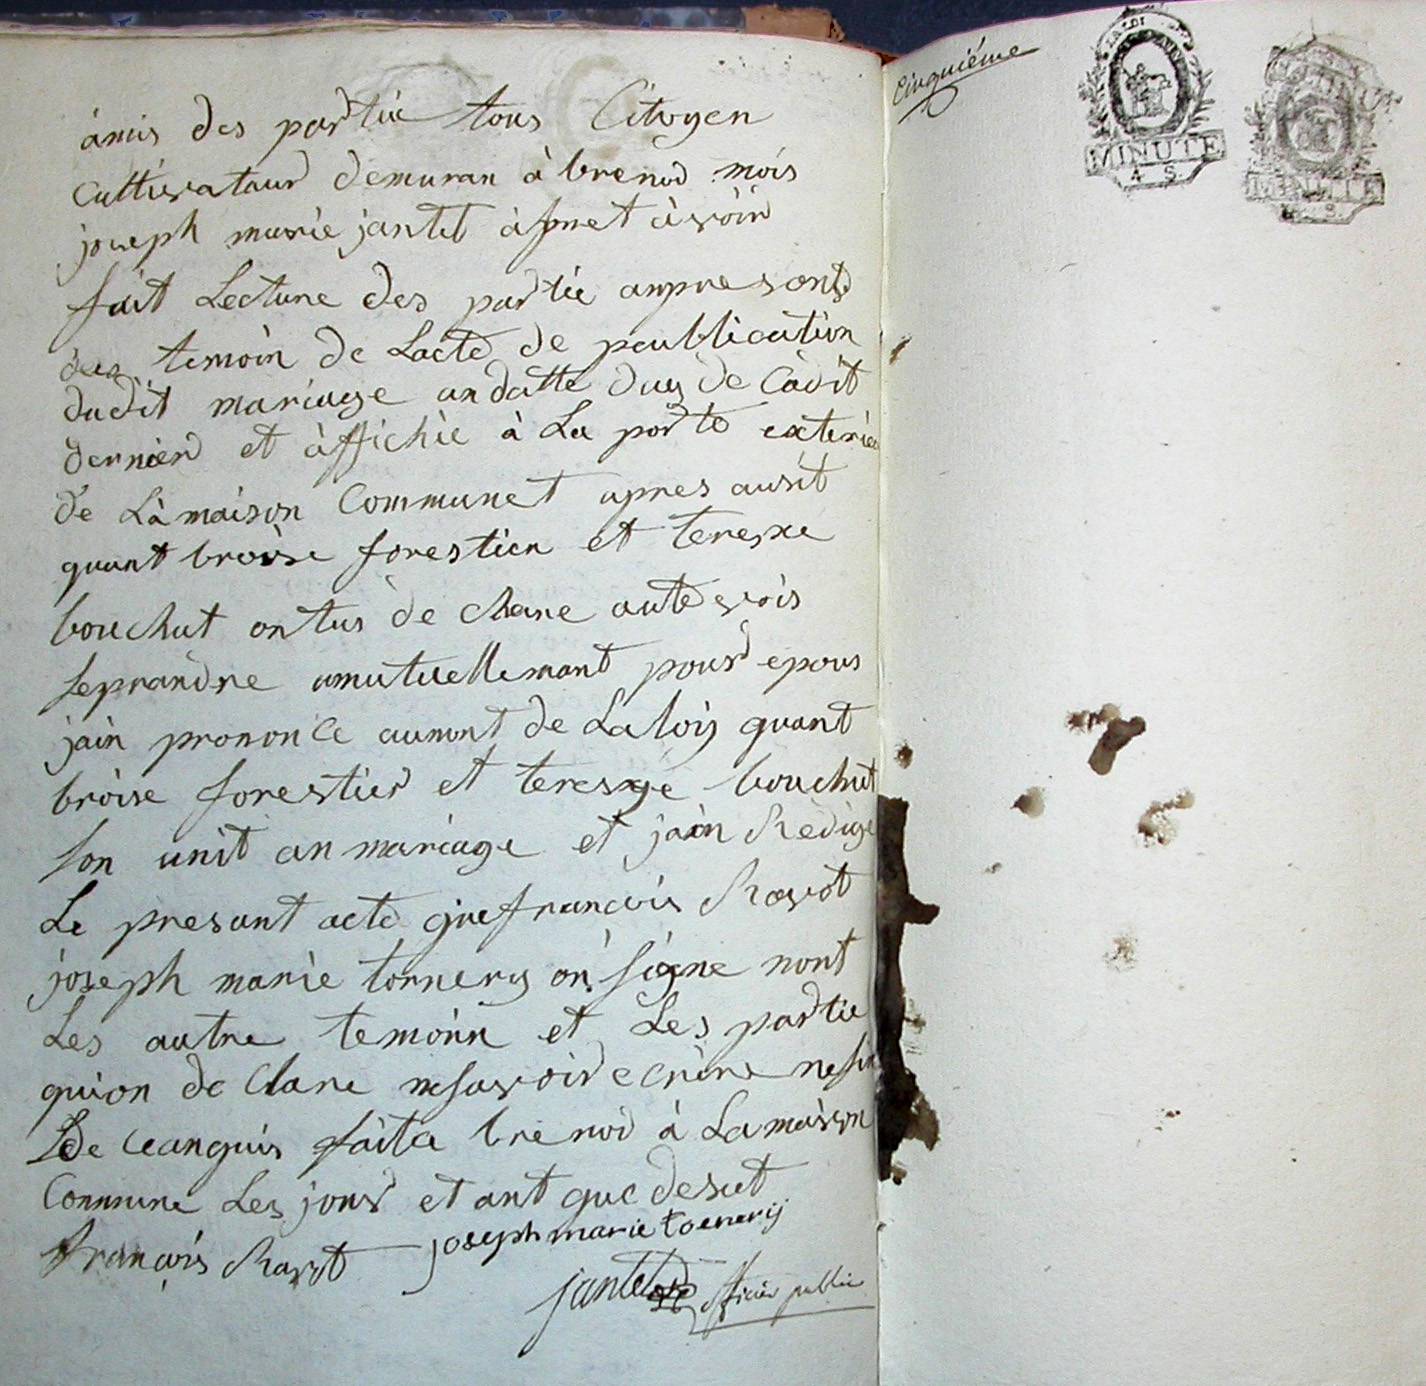 amis des partie tous Citoyen
cultivataur demuran à brenod mois
joseph marie jantet àpret àvoir
fait Lecture des partie anpresont
temoin de Lacte de peublication
dudit mariage andatte duy de Cadit
dernier et àffichée à La porte exterieu
de Là maison Communet apres avoit
quant broise forestier et teresxe
bouchut ontus de clare aute vois
seprandre amutuellemant pour epous
jain prononce aunont de La loiy quant
broise forestier et teresxe bouchut
son unit an mariage et jain Redige
Le presant acte que francois Ravot
joseph marie tornery on signe nont
Les autre temoin et Les partie
quion de Clare nesavoir ecrire ne
de ceanquis faita brenod à La maison
Commune Les jour et ant que desut
francois Ravot joseph marie toenerij
jantet officier public
Cinquiéme
LA LOI
MINUTE
4 S.
MINUTE